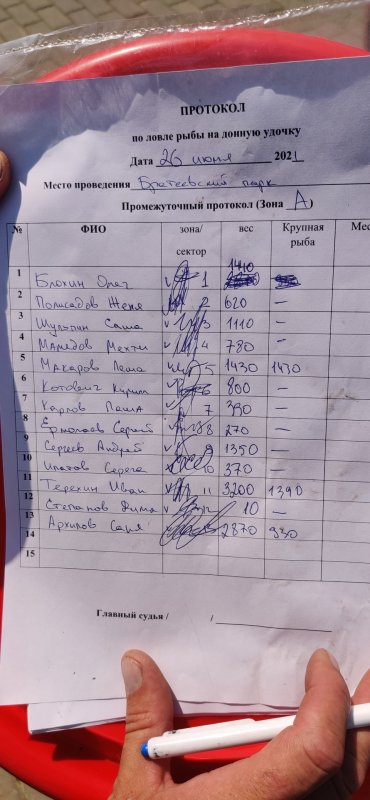 ПРОТОКОЛ
по ловле рыбы на донную удочку
Дата 26 июня 2021
Место проведения Братеевский парк
Промежуточный протокол (Зона А)
№ ФИО зона/сектор вес Крупная рыба Мес
1 Блохин Олег 1 1410
2 Полисадов Женя 2 620 –
3 Саша 3 1110 –
4 Мамедов Мехти 4 780 –
5 Макаров Леша 5 1430 1430
6 Котович Кирилл 6 800 –
7 Карпов Паша 7 390 –
8 Ермолаев Сергей 8 270 –
9 Сергеев Андрей 9 1350 –
10 Серега 10 370 –
11 Терехин Иван 11 3200 1390
12 Степанов Дима 10 –
13 Архипов 2870 930
14
15
Главный судья / /